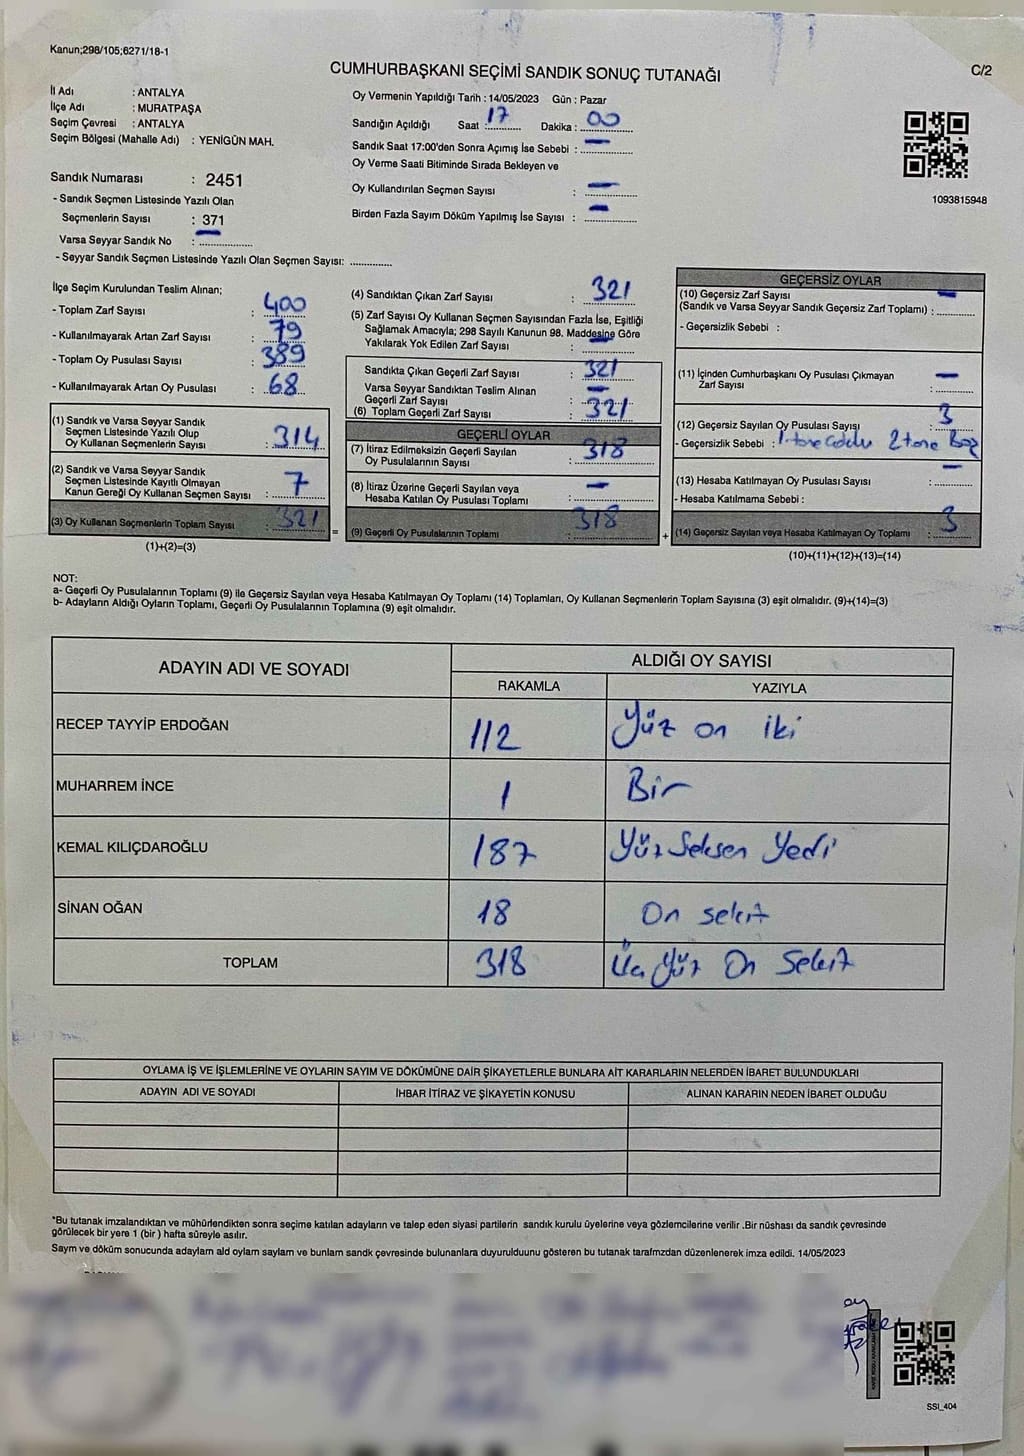 Kanun;298/105;6271/18-1
CUMHURBAŞKANI SEÇİMİ SANDIK SONUÇ TUTANAĞI
C/2
İl Adı : ANTALYA
İlçe Adı : MURATPAŞA
Seçim Çevresi : ANTALYA
Seçim Bölgesi (Mahalle Adı) : YENİGÜN MAH.
Oy Vermenin Yapıldığı Tarih : 14/05/2023 Gün : Pazar
Sandığın Açıldığı Saat : 17 Dakika : 00
Sandık Saat 17:00'den Sonra Açımış İse Sebebi : —
Oy Verme Saati Bitiminde Sırada Bekleyen ve
Oy Kullandırılan Seçmen Sayısı : —
Birden Fazla Sayım Döküm Yapılmış İse Sayısı : —
1093815948
Sandık Numarası : 2451
- Sandık Seçmen Listesinde Yazılı Olan
Seçmenlerin Sayısı : 371
Varsa Seyyar Sandık No : —
- Seyyar Sandık Seçmen Listesinde Yazılı Olan Seçmen Sayısı: ............
İlçe Seçim Kurulundan Teslim Alınan;
- Toplam Zarf Sayısı : 400
- Kullanılmayarak Artan Zarf Sayısı : 79
- Toplam Oy Pusulası Sayısı : 389
- Kullanılmayarak Artan Oy Pusulası : 68
(1) Sandık ve Varsa Seyyar Sandık
Seçmen Listesinde Yazılı Olup
Oy Kullanan Seçmenlerin Sayısı : 314
(2) Sandık ve Varsa Seyyar Sandık
Seçmen Listesinde Kayıtlı Olmayan
Kanun Gereği Oy Kullanan Seçmen Sayısı : 7
(3) Oy Kullanan Seçmenlerin Toplam Sayısı : 321
(1)+(2)=(3)
=
(4) Sandıktan Çıkan Zarf Sayısı : 321
(5) Zarf Sayısı Oy Kullanan Seçmen Sayısından Fazla İse, Eşitliği
Sağlamak Amacıyla; 298 Sayılı Kanunun 98. Maddesine Göre
Yakılarak Yok Edilen Zarf Sayısı : —
Sandıkta Çıkan Geçerli Zarf Sayısı : 321
Varsa Seyyar Sandıktan Teslim Alınan
Geçerli Zarf Sayısı : —
(6) Toplam Geçerli Zarf Sayısı : 321
GEÇERLİ OYLAR
(7) İtiraz Edilmeksizin Geçerli Sayılan
Oy Pusulalarının Sayısı : 318
(8) İtiraz Üzerine Geçerli Sayılan veya
Hesaba Katılan Oy Pusulası Toplamı : —
(9) Geçerli Oy Pusulalarının Toplamı : 318
+
GEÇERSİZ OYLAR
(10) Geçersiz Zarf Sayısı
(Sandık ve Varsa Seyyar Sandık Geçersiz Zarf Toplamı) : —
- Geçersizlik Sebebi :
(11) İçinden Cumhurbaşkanı Oy Pusulası Çıkmayan
Zarf Sayısı : —
(12) Geçersiz Sayılan Oy Pusulası Sayısı : 3
- Geçersizlik Sebebi : 1 tane 2 tane Boş
(13) Hesaba Katılmayan Oy Pusulası Sayısı : —
- Hesaba Katılmama Sebebi :
(14) Geçersiz Sayılan veya Hesaba Katılmayan Oy Toplamı : 3
(10)+(11)+(12)+(13)=(14)
NOT:
a- Geçerli Oy Pusulalarının Toplamı (9) ile Geçersiz Sayılan veya Hesaba Katılmayan Oy Toplamı (14) Toplamları, Oy Kullanan Seçmenlerin Toplam Sayısına (3) eşit olmalıdır. (9)+(14)=(3)
b- Adayların Aldığı Oyların Toplamı, Geçerli Oy Pusulalarının Toplamına (9) eşit olmalıdır.
ADAYIN ADI VE SOYADI ALDIĞI OY SAYISI
RAKAMLA YAZIYLA
RECEP TAYYİP ERDOĞAN 112 Yüz on iki
MUHARREM İNCE 1 Bir
KEMAL KILIÇDAROĞLU 187 Yüz Seksen Yedi
SİNAN OĞAN 18 On sekiz
TOPLAM 318 Üç Yüz On Sekiz
OYLAMA İŞ VE İŞLEMLERİNE VE OYLARIN SAYIM VE DÖKÜMÜNE DAİR ŞİKAYETLERLE BUNLARA AİT KARARLARIN NELERDEN İBARET BULUNDUKLARI
ADAYIN ADI VE SOYADI İHBAR İTİRAZ VE ŞİKAYETİN KONUSU ALINAN KARARIN NEDEN İBARET OLDUĞU
*Bu tutanak imzalandıktan ve mühürlendikten sonra seçime katılan adayların ve talep eden siyasi partilerin sandık kurulu üyelerine veya gözlemcilerine verilir .Bir nüshası da sandık çevresinde
görülecek bir yere 1 (bir ) hafta süreyle asılır.
Sayım ve döküm sonucunda adaylam ald oylam saylam ve bunlam sandk çevresinde bulunanlara duyurulduunu gösteren bu tutanak tarafmzdan düzenlenerek imza edildi. 14/05/2023
SSI_404